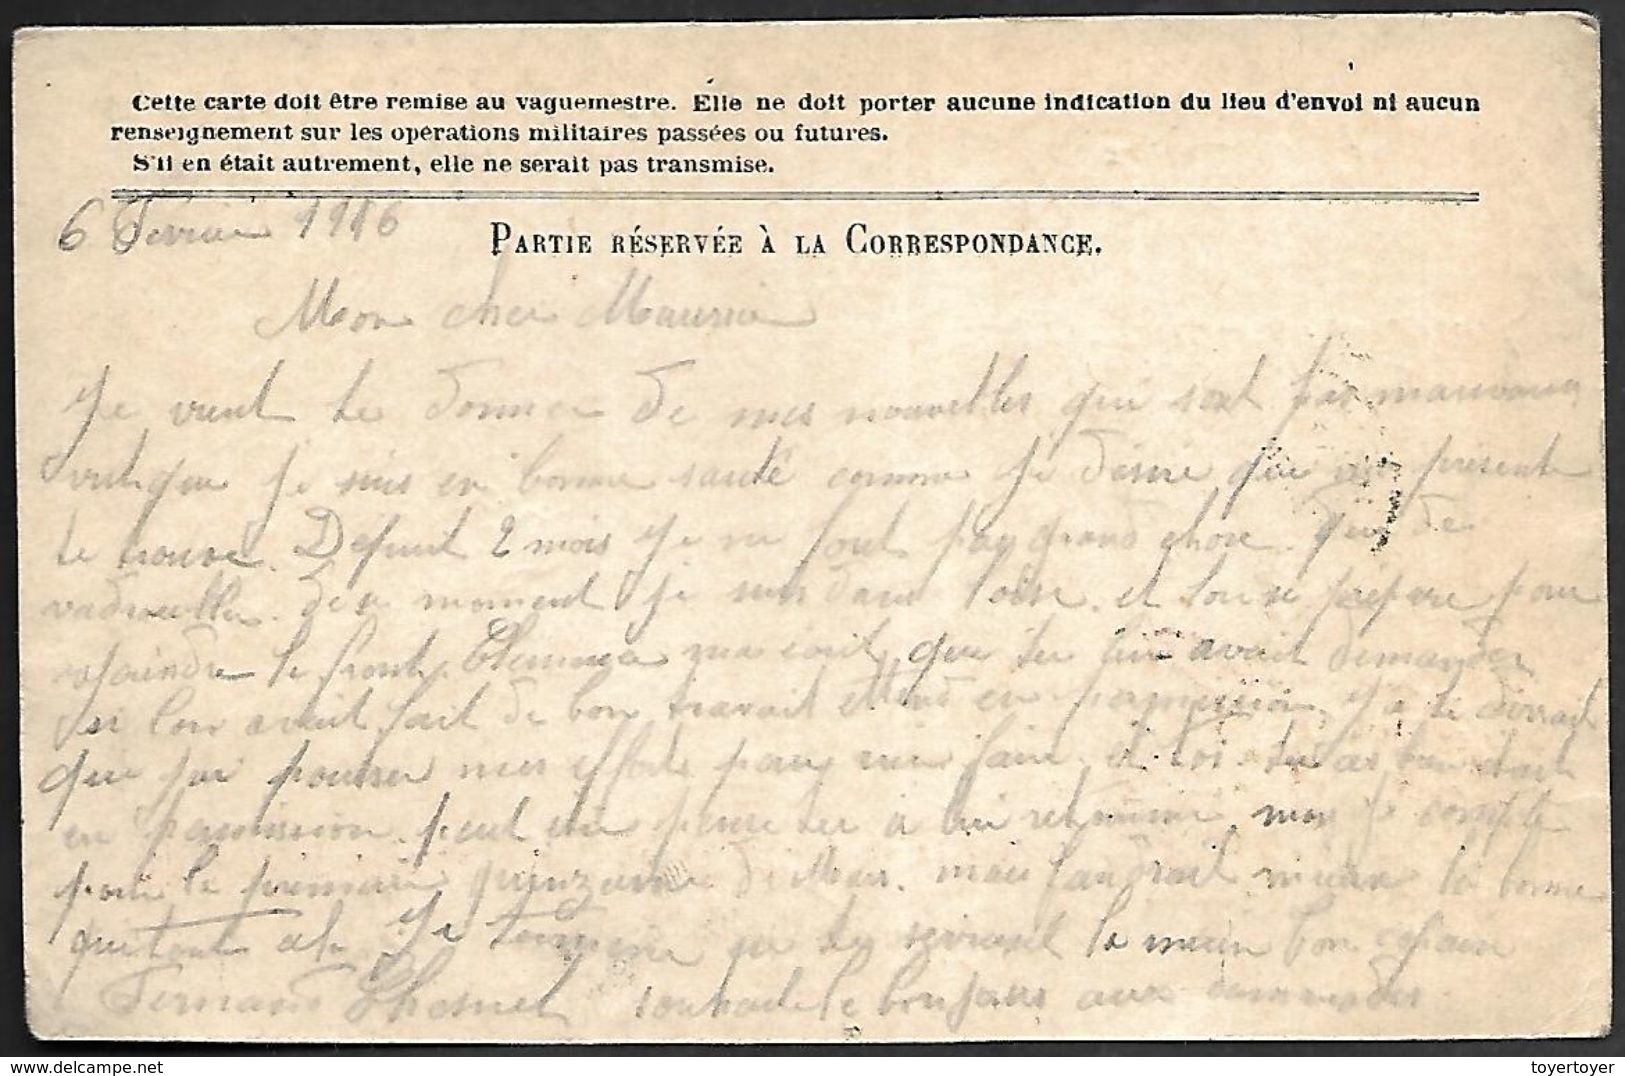 Cette carte doit être remise au vaguemestre. Elle ne doit porter aucune indication du lieu d'envoi ni aucun
renseignement sur les opérations militaires passées ou futures.
S'il en était autrement, elle ne serait pas transmise.
6 Fevrier 1916
PARTIE RÉSERVÉE À LA CORRESPONDANCE.
Mon cher Maurice
Je vient te donner de mes nouvelles qui sont pas mauvaises
vut que je suis en bonne santé comme je désire que ma présente
te trouve. Depuit 2 mois je ne fout pas grand chose que de
vadrouiller. de ce moment je suis dans loise. et lon se prépare pour
rejoindre le front. ma écrit que tu lui avait demander
si lon avait fait de bon travail étand en permission, j'a te dirrait
que par pousser mes efforts pour rien faire. et toi tu as bien était
en permission. peut être a lui retourné moi je compte
pour la premiere quinzaine de Mars. mais faudrait mieux la bonne
que toute Je termine en te serrant la main bon copain
Fernand Chesnel souhaite le bonjour aux
toyertoyer